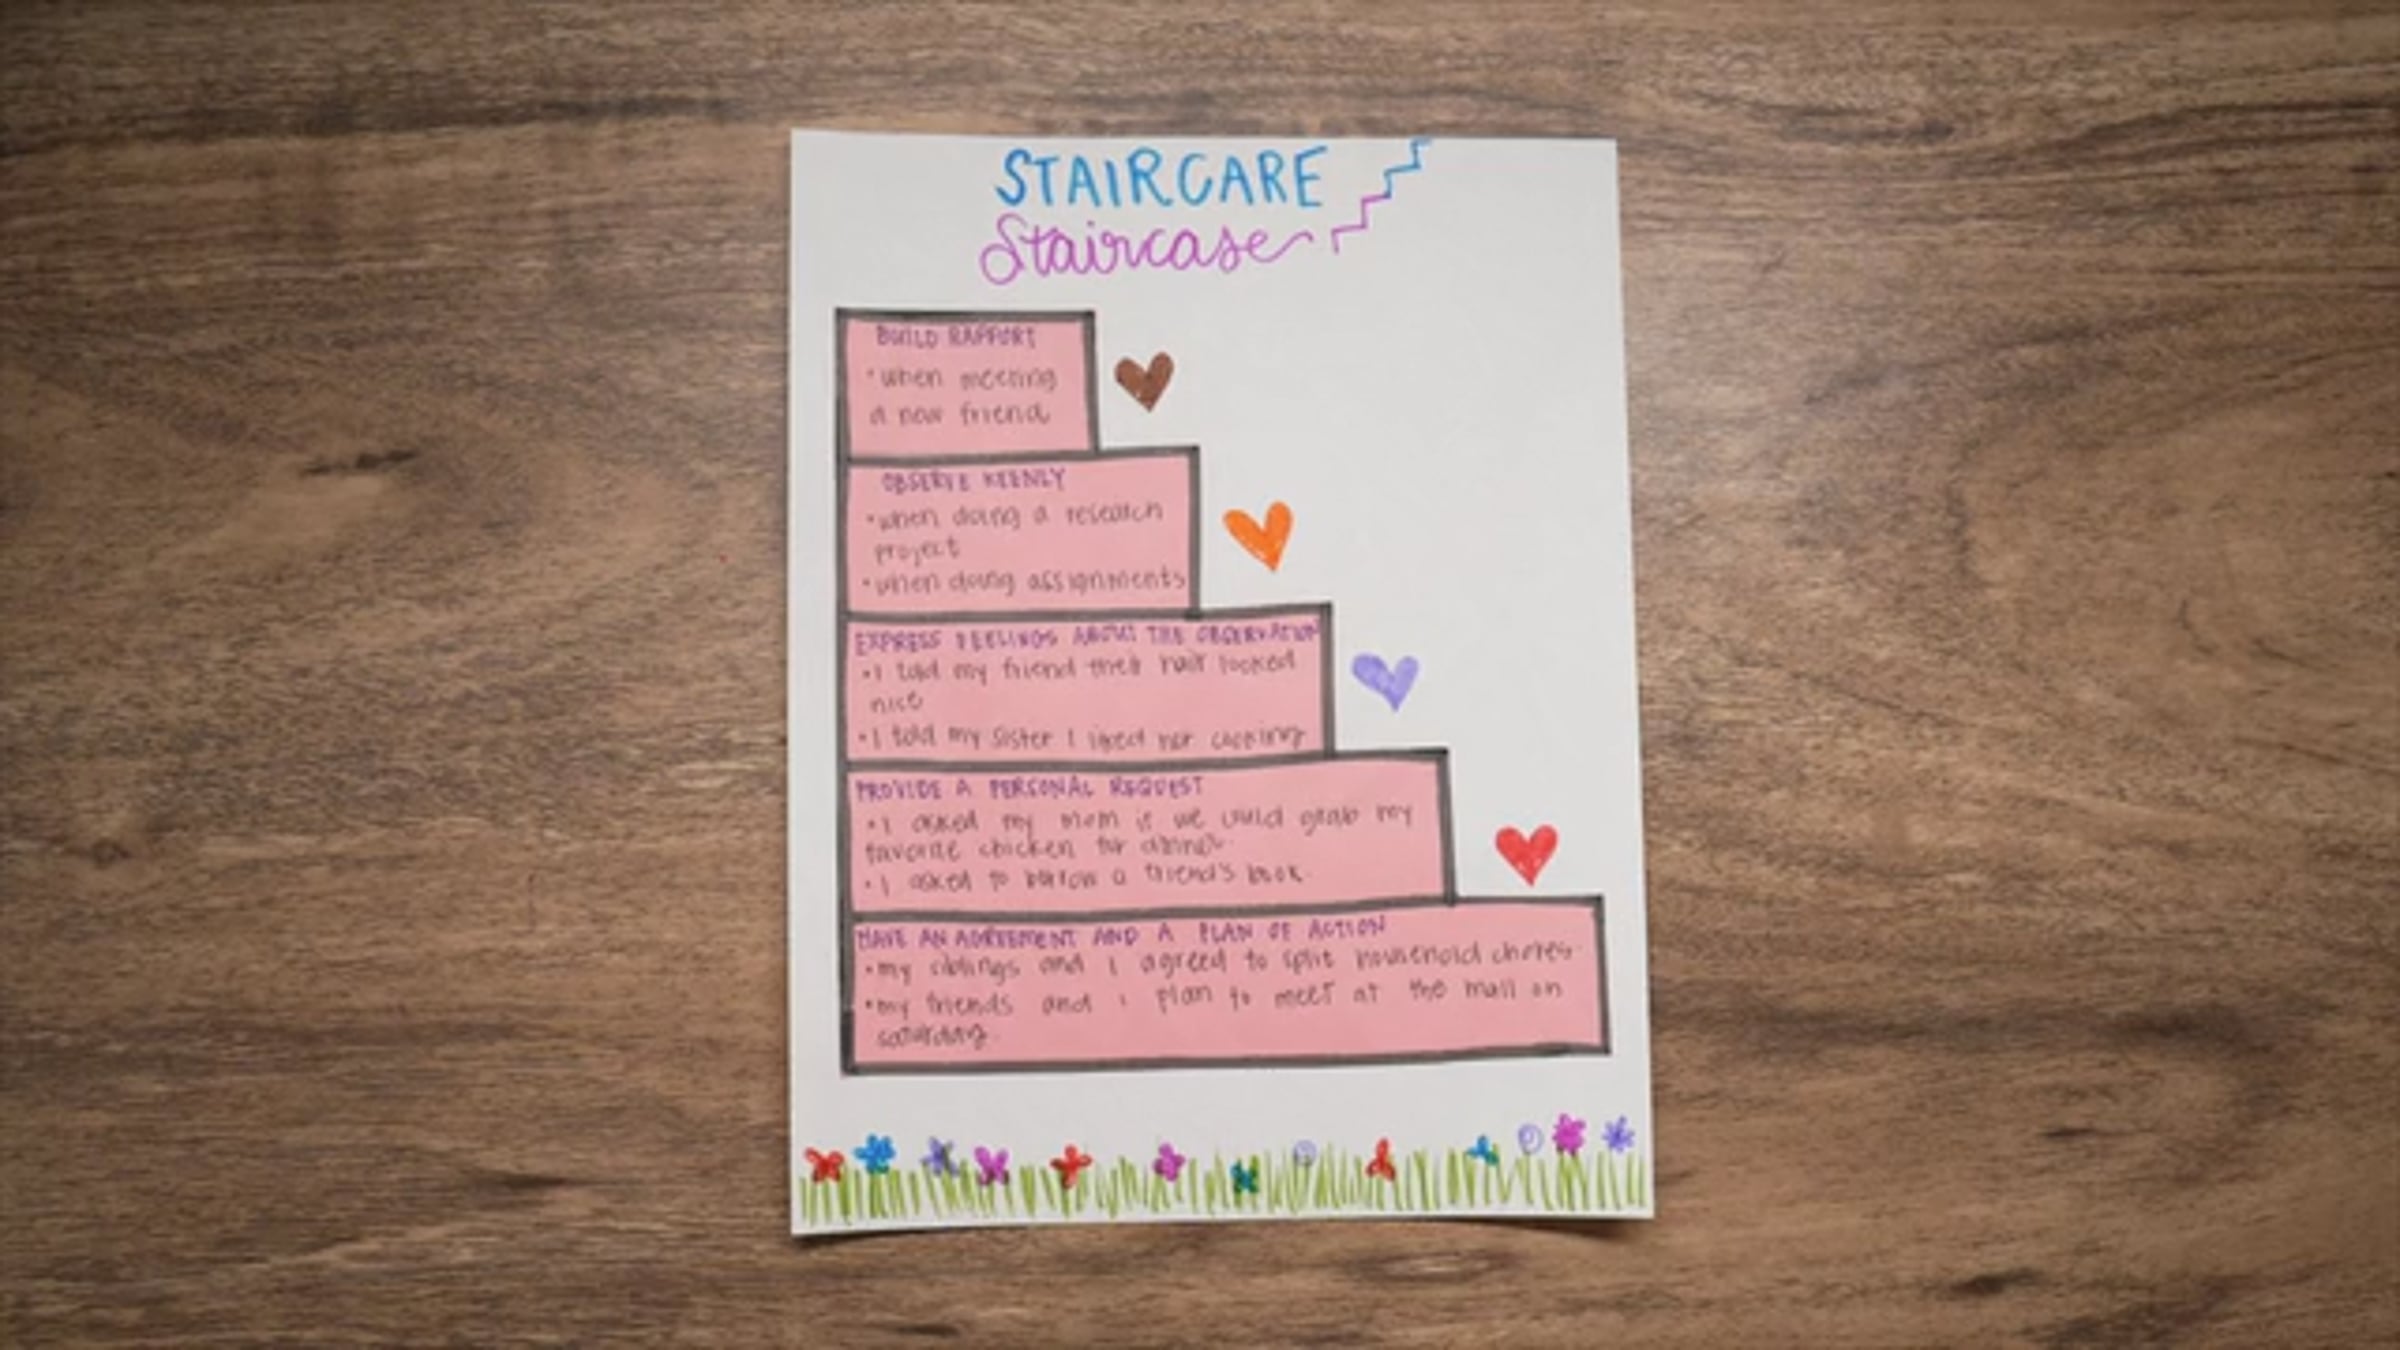 STAIRCARE
Staircase
BUILD RAPPORT
• when meeting
a new friend
OBSERVE KEENLY
• when doing a research
project
• when doing assignments
EXPRESS FEELINGS ABOUT THE OBSERVATION
• I told my friend their hair looked
nice
• I told my sister I liked her cooking
PROVIDE A PERSONAL REQUEST
• I asked my mom if we could grab my
favorite chicken for dinner.
• I asked to borrow a friend's book.
HAVE AN AGREEMENT AND A PLAN OF ACTION
• my siblings and I agreed to split household chores.
• my friends and I plan to meet at the mall on
saturday.